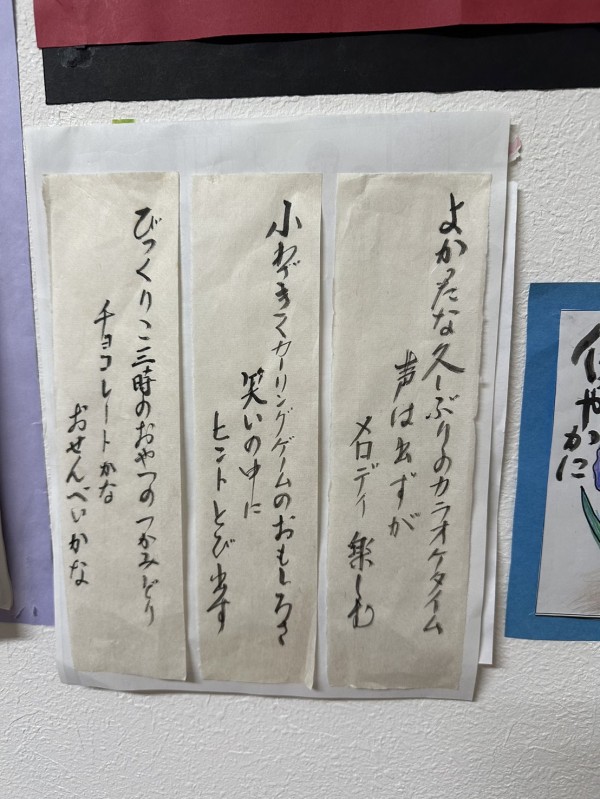 よかったな久しぶりのカラオケタイム
声は出ずが
メロディ楽しむ
小わざきくカーリングゲームのおもしろさ
笑いの中に
ヒントとび出す
びっくりこ三時のおやつのつかみどり
チョコレートかな
おせんべいかな
やかに